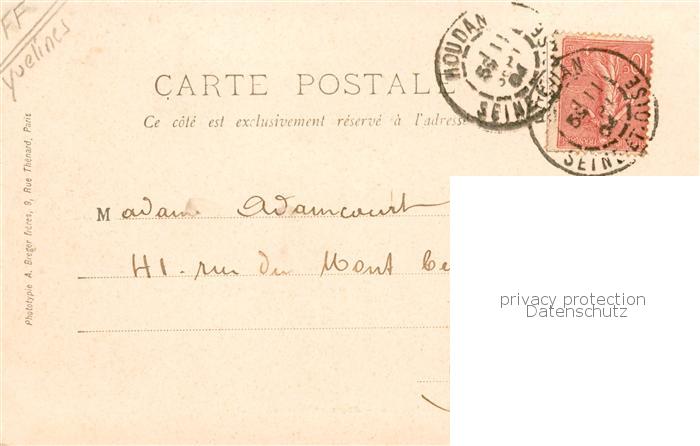 FF
Yvelines
CARTE POSTALE
Ce côté est exclusivement réservé à l'adresse
HOUDAN
SEINE
HOUDAN
SEINE-ET-OISE
10
Madame Adamcourt
41. rue du Mont Ce
Phototypie A. Breger frères, 9, Rue Thénard, Paris
privacy protection
Datenschutz